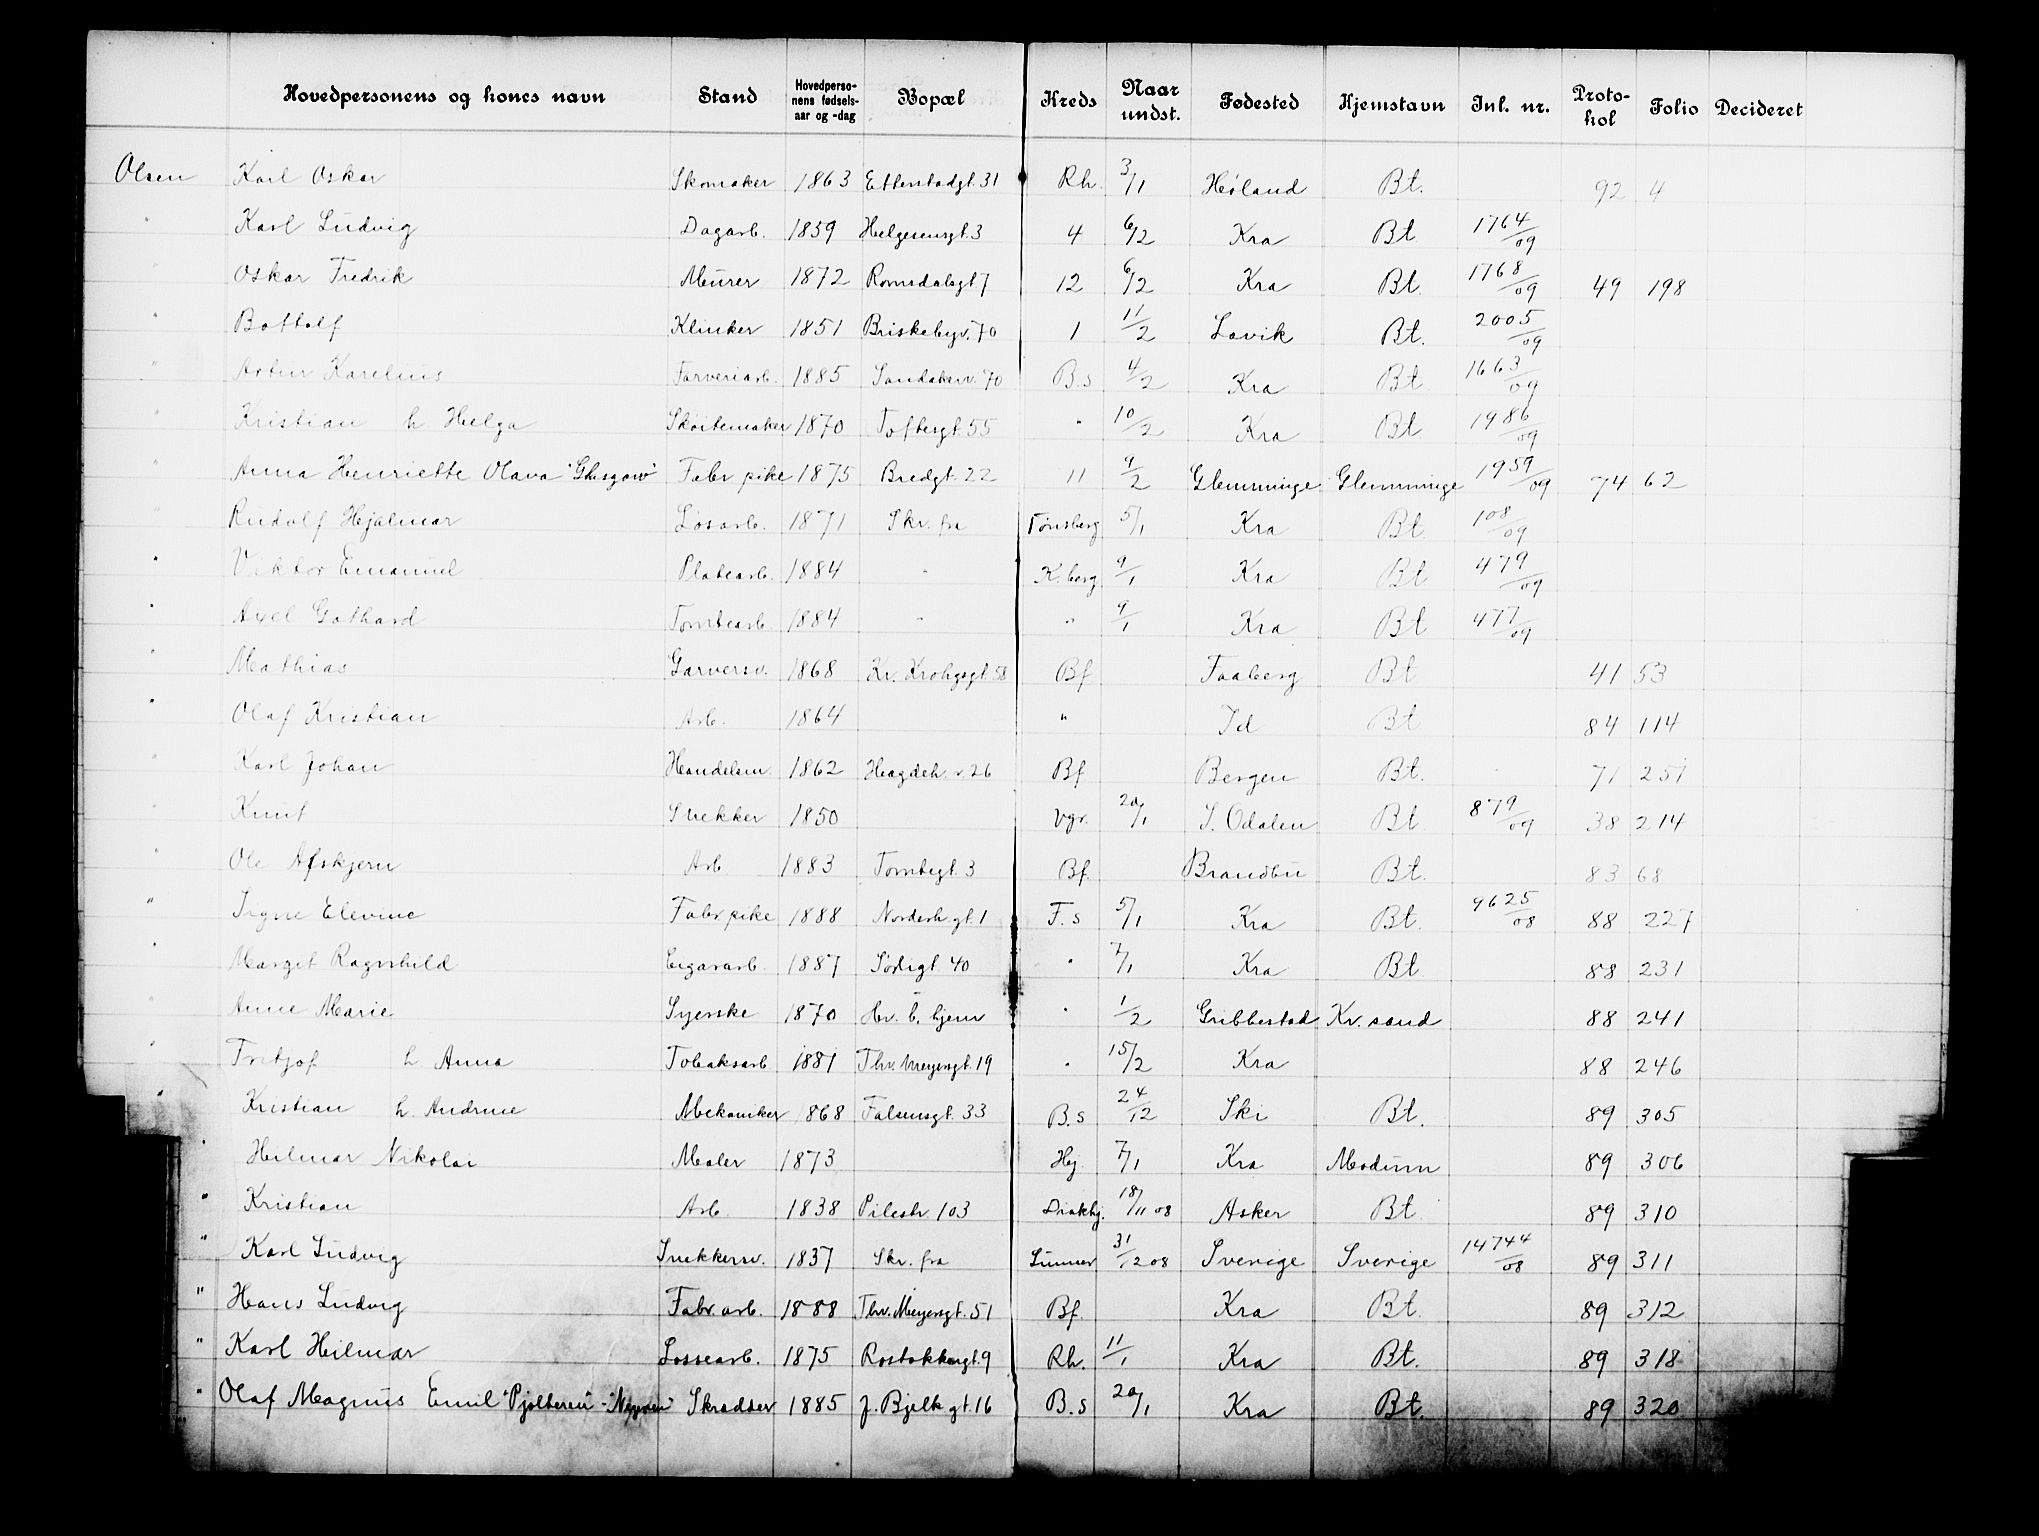 Hovedpersonens og kones navn Stand Hovedperso-nens fødsels-aar og -dag Bopæl Kreds Naar undst. Fødested Hjemstavn Inl. nr. Proto-kol Folio Decideret
Olsen Karl Oskar Skomaker 1863 Etterstadgt. 31 Rh. 3/1 Høland Bt. 92 4
" Karl Ludvig Dagarb. 1859 Helgesensgt. 3 4 6/2 Kra Bt 1764/09
" Oskar Fredrik Murer 1872 Romsdalsgt 7 12 6/2 Kra Bt. 1768/09 49 198
" Bottolf Klinker 1851 Briskebyv. 70 1 11/2 Lavik Bt. 2005/09
" Artur Karelius Farveriarb. 1885 Sandakerv. 70 B.s 4/2 Kra Bt 1663/09
" Kristian h Helga Skøitemaker 1870 Toftesgt. 55 " 10/2 Kra Bt 1986/09
" Anna Henriette Olava "Glasgow" Fabr pike 1875 Bredgt. 22 11 9/2 Glemminge Glemminge 1959/09 74 62
" Rudolf Hjalmar Løsarb. 1871 Skr. fra Tønsberg 5/1 Kra Bt. 108/09
" Viktor Emanuel Platearb. 1884 " K.berg 9/1 Kra Bt 479/09
" Axel Gothard Tomtearb. 1884 " " 9/1 Kra Bt 477/09
" Mathias Garversv. 1868 Kr. Krohgsgt. 58 Bf Faaberg Bt 41 53
" Olaf Kristian Arb. 1864 " Id Bt 84 114
" Karl Johan Handelsm. 1862 Hegdeh. v. 26 Bf Bergen Bt. 71 251
" Knut Snekker 1850 Vgr. 20/1 S. Odalen Bt 879/09 38 214
" Ole Afskjern Arb 1883 Tomtegt. 3 Bf. Brandbu Bt. 83 68
" Signe Elevine Fabr pike 1888 Norderh. gt. 1 F.s 5/1 Kra Bt. 9625/08 88 227
" Margit Ragnhild Cigararb. 1887 Sørligt 40 " 7/1 Kra Bt. 88 231
" Anne Marie Syerske 1870 Hv. b. hjem " 1/2 Gribbestad Kr. sand 88 241
" Fritjof h Anna Tobaksarb 1881 Thv. Meyersgt. 19 " 15/2 Kra 88 246
" Kristian h. Andrine Mekaniker 1868 Falsensgt. 33 B.s 24/12 Ski Bt. 89 305
" Hilmar Nikolai Maler 1873 Hej. 7/1 Kra Modum 89 306
" Kristian Arb. 1838 Pilestr. 103 Diakhj. 18/11 08 Asker Bt. 89 310
" Karl Ludvig Snekkersv. 1837 Skr. fra Lunner 31/12 08 Sverige Sverige 14744/08 89 311
" Hans Ludvig Fabr. arb. 1888 Thv. Meyersgt. 51 Bf. Kra Bt. 89 312
" Karl Hilmar Lossearb. 1875 Rostokkengt. 9 Rh. 11/1 Kra Bt. 89 318
" Olaf Magnus Emil "Pjolteren" - Skrædder 1885 J. Bjelk gt. 16 B.s 20/1 Kra Bt. 89 320